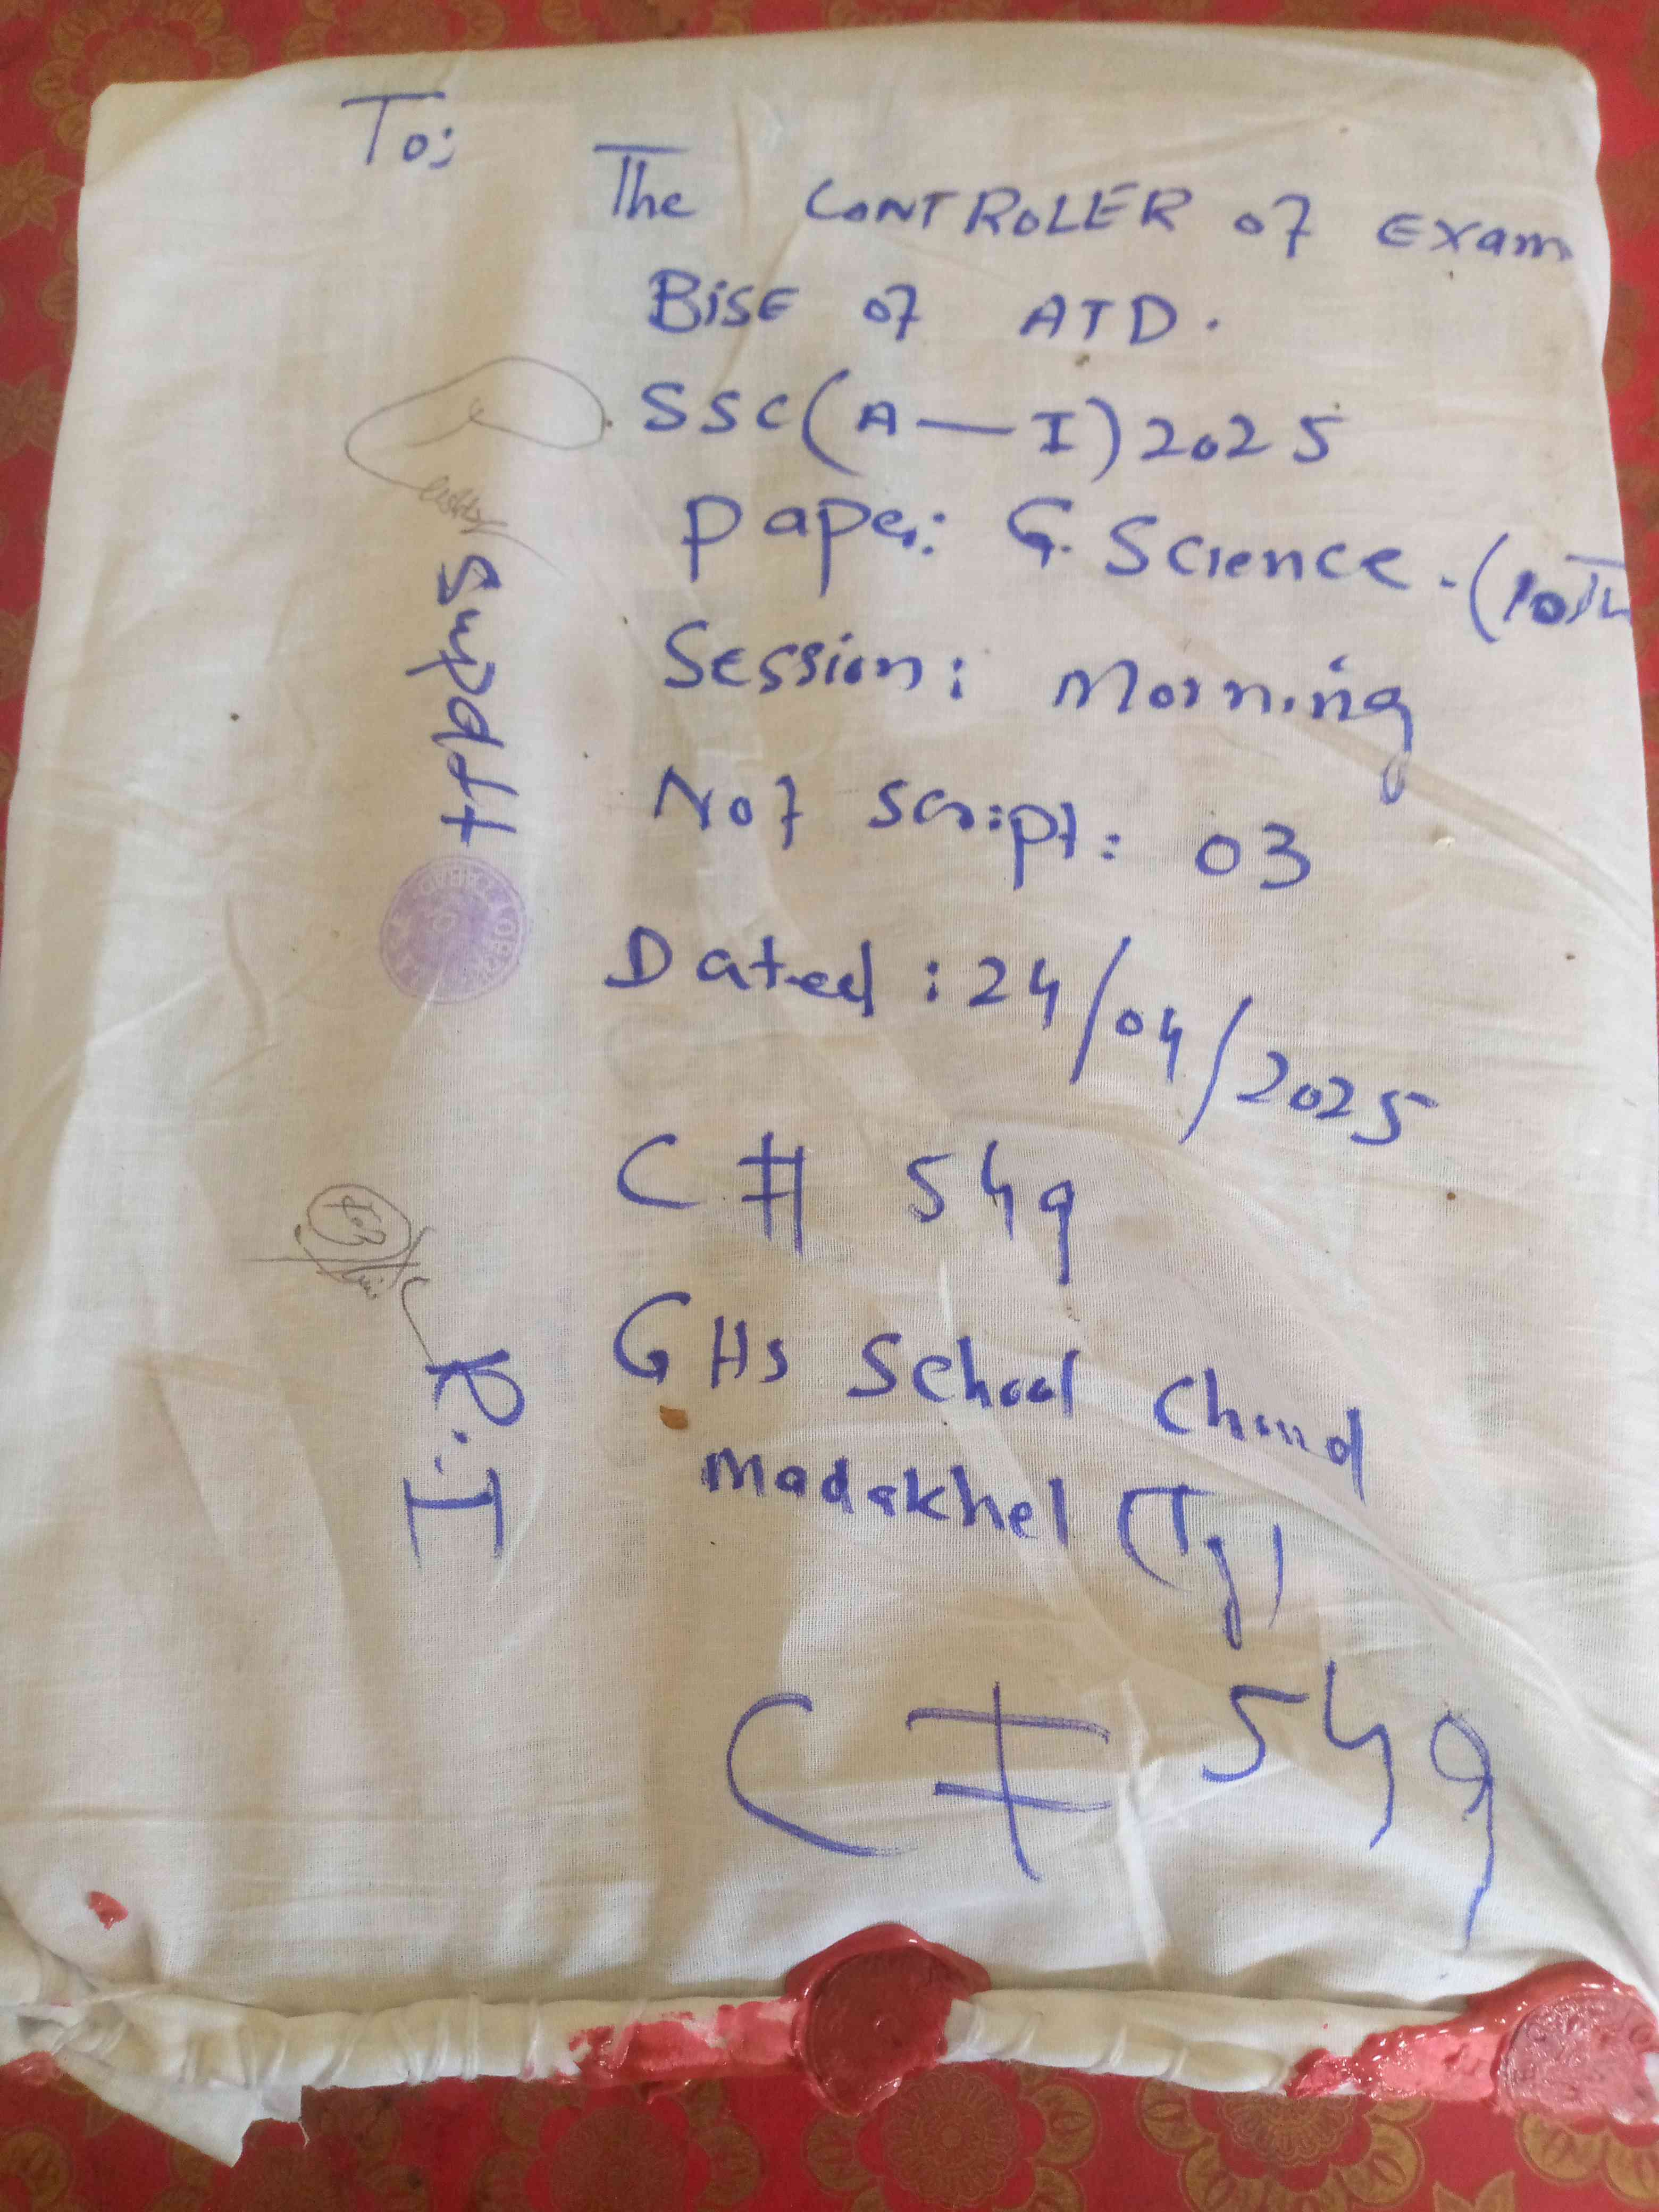 To:
The CONTROLER of Exam
BiSE of ATD.
SSC (A — I) 2025
Paper: G. Science. (10Th
Session: Morning
No of Script: 03
Dated: 24/04/2025
C # 549
GHS School Chund
Madakhel (Tg)
C # 549
Supdtt
R.I